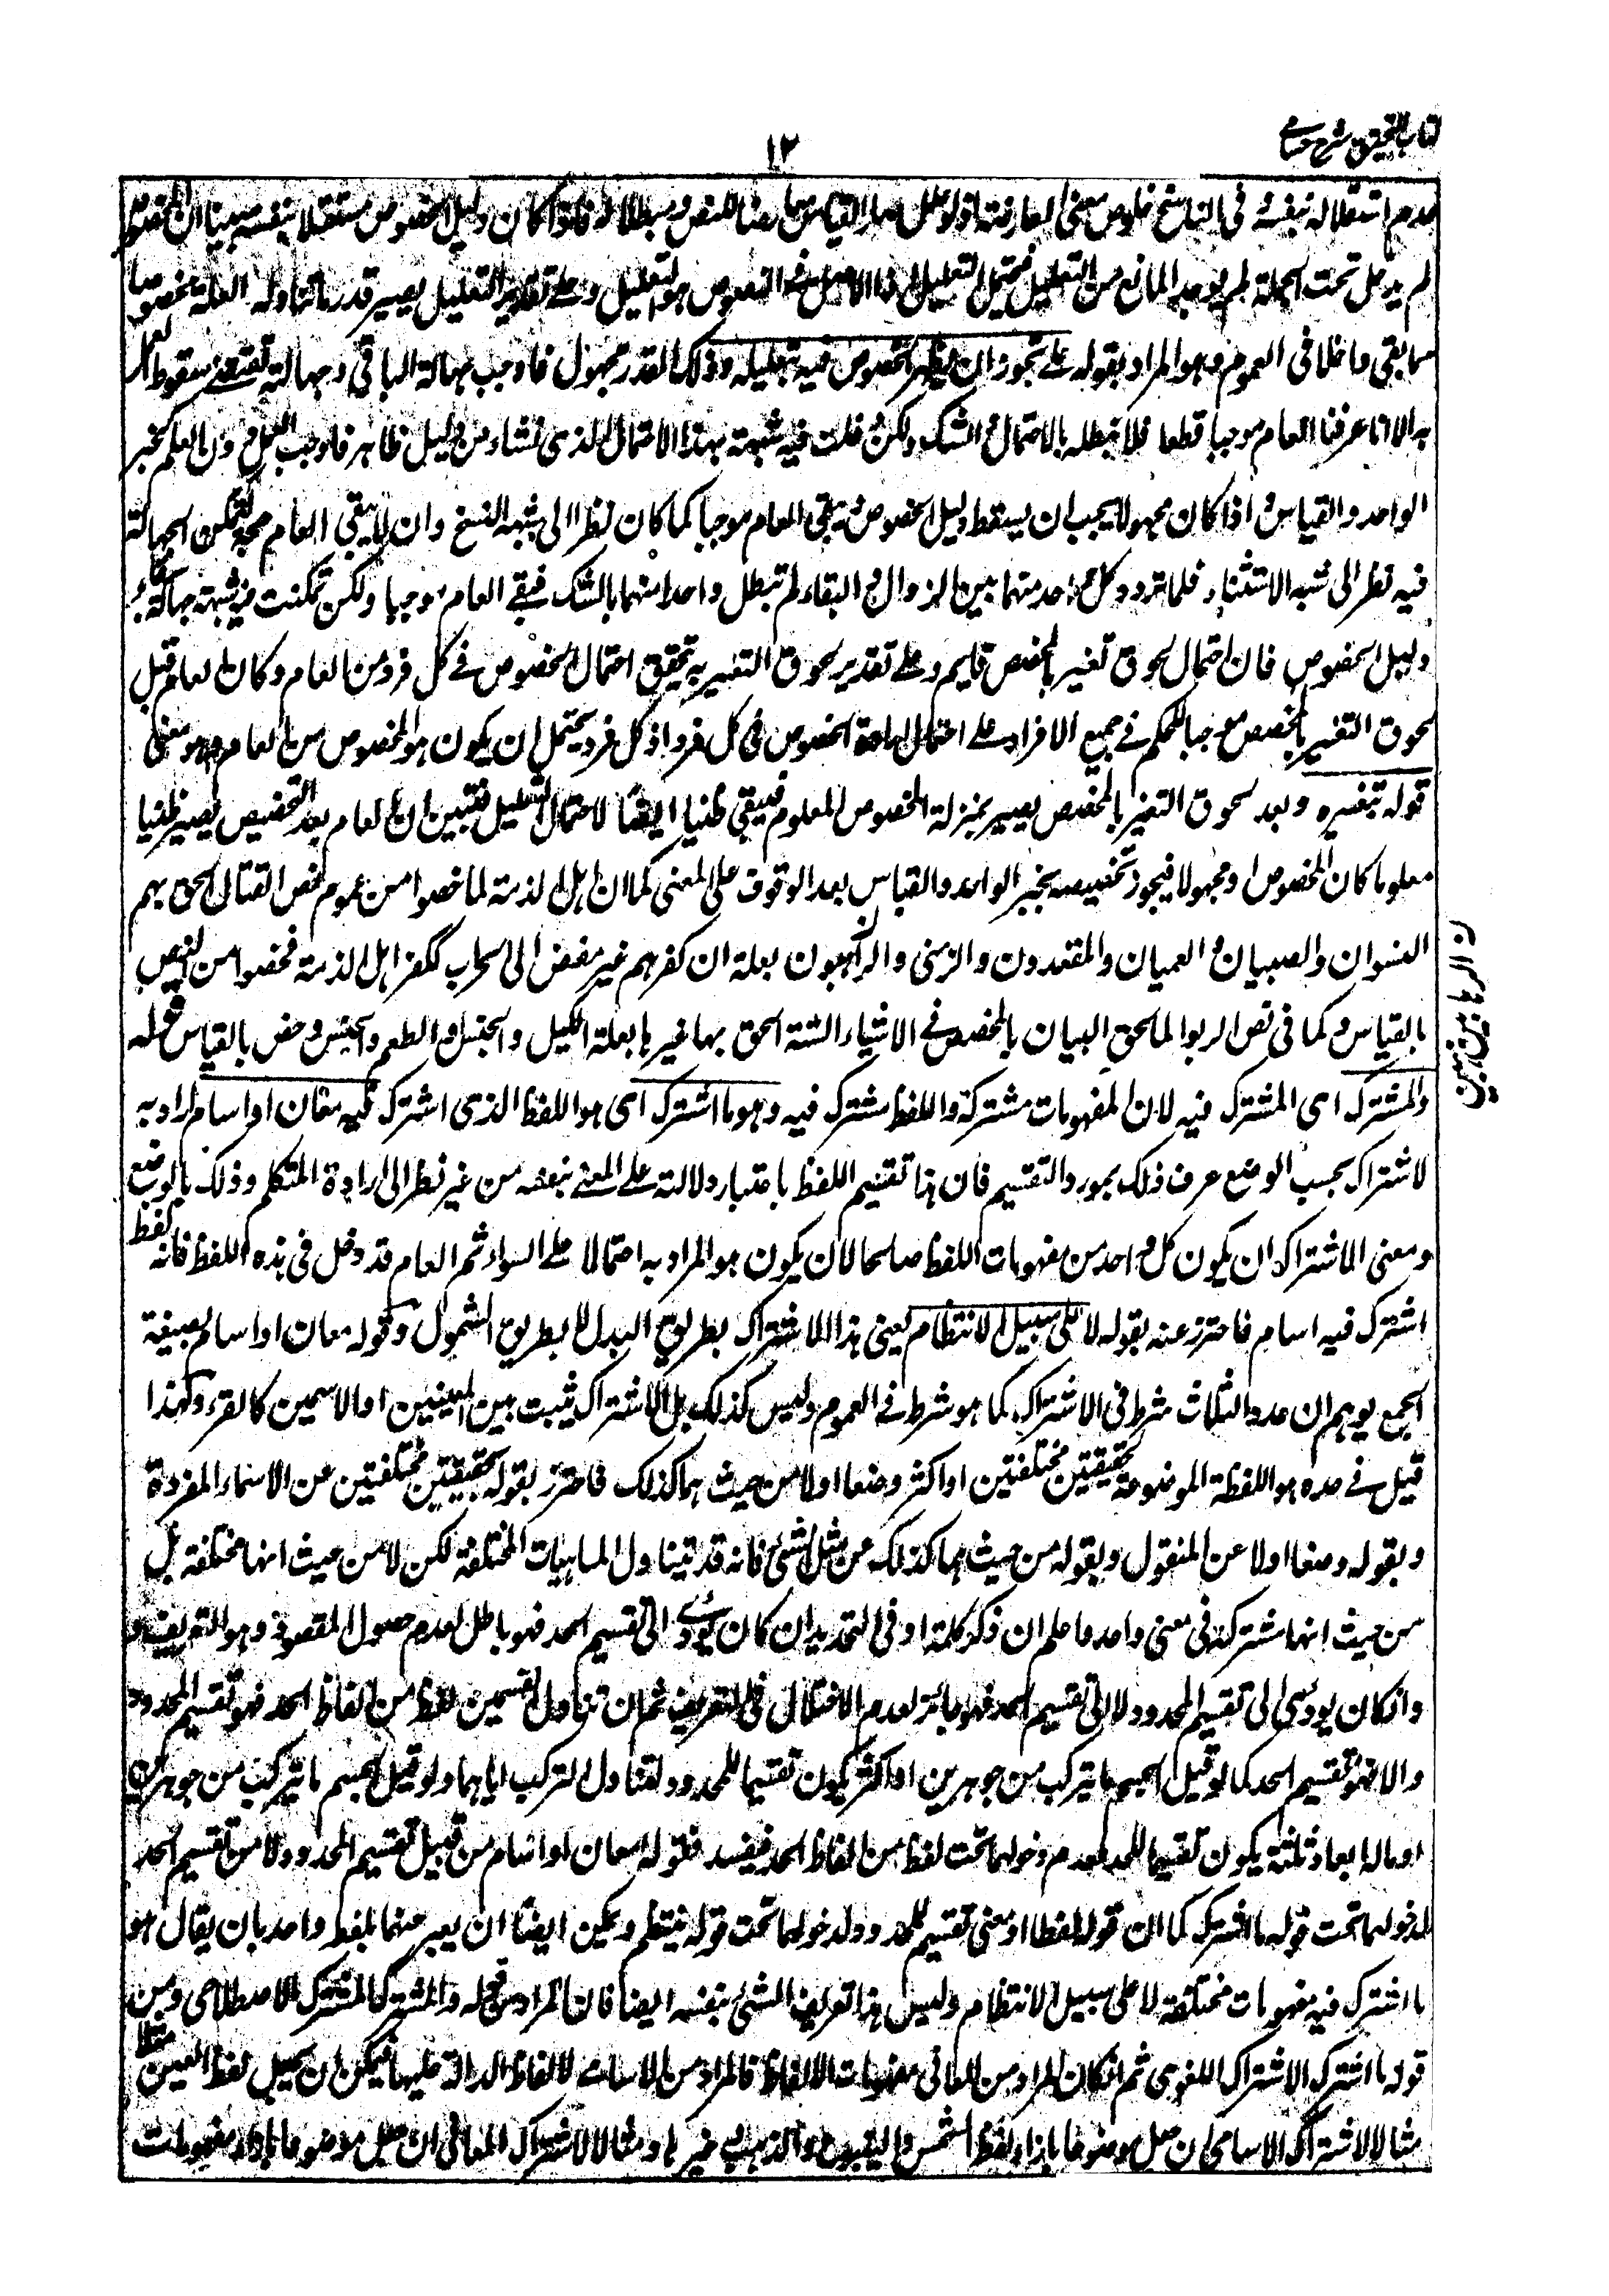 كتاب التحقيق شرح حسامي
١٢
عدم استقلاله بنفسه وفى الناسخ خلوص معنى المعارضة اذ لو علل صار القياس معارضا للنص ومبطلا له فاذا كان دليل الخصوص مستقلا بنفسه مبينا ان المخصوص
لم يدخل تحت الجملة لم يوجد المانع من التعليل فيحتمل التعليل اذ الاصل فى النصوص هو التعليل وعلى تقدير التعليل يصير قدر ما تناوله العلة مخصوصا
مما بقى داخلا فى العموم وهو المراد بقوله على تجوز ان يظهر الخصوص فيه بتعليله وذلك القدر مجهول فاوجب جهالة الباقى وجهالته تقتضى سقوط العمل
به الا انا عرفنا العام موجبا قطعا فلا نبطله بالاحتمال والشك ولكن دخلت فيه شبهة بهذا الاحتمال الذى نشاء من دليل ظاهر فاوجب العمل دون العلم كخبر
الواحد والقياس واذا كان مجهولا يجب ان يسقط دليل الخصوص ويبقى العام موجبا كما كان نظرا الى شبه النسخ وان لا يبقى العام حجة لتمكن الجهالة
فيه نظرا الى شبه الاستثناء فلما تردد كل واحد منهما بين الزوال والبقاء لم نبطل واحدا منهما بالشك فبقى العام موجبا ولكن تمكنت فيه شبهة جهالة
دليل الخصوص فان احتمال لحوق تغير بالمخصص قايم وعلى تقدير لحوق التغيير به تحقق احتمال الخصوص فى كل فرد من العام وكان العام قبل
لحوق التغيير بالمخصص موجبا للحكم فى جميع الافراد على احتمال ارادة الخصوص فى كل فرد اذ كل فرد يحتمل ان يكون هو المخصوص من العام وهو معنى
قوله بتفسيره وبعد لحوق التغير بالمخصص يصير بمنزلة الخصوص المعلوم فيبقى ظنيا ايضا لاحتمال التعليل فتبين ان العام بعد التخصيص يصير ظنيا
معلوما كان المخصوص او مجهولا فيجوز تخصيصه بخبر الواحد والقياس بعد الوقوف على المعنى كما ان اهل الذمة لما خصوا من عموم نص القتال الحق بهم
النسوان والصبيان والعميان والمقعدون والزمنى والراهبون بعلة ان كفرهم غير مفض الى الحراب ككفر اهل الذمة فخصوا من النص
بالقياس وكما فى نص الربوا لما لحق البيان بالمخصص فى الاشياء الستة الحق بها غيرها بعلة الكيل والجنس او الطعم والجنس وخص بالقياس قوله
والمشترك اى المشترك فيه لان المفهومات مشتركة واللفظ مشترك فيه وهو ما اشترك اى هو اللفظ الذى اشترك فيه معان او اسام المراد به
لاشتراك بحسب الوضع عرف ذلك بمورد التقسيم فان هذا تقسيم اللفظ باعتبار دلالته على المعنى بنفسه من غير نظر الى ارادة المتكلم وذلك بالوضع
ومعنى الاشتراك ان يكون كل واحد من مفهومات اللفظ صالحا لان يكون هو المراد به احتمالا على السواء ثم العام قد دخل فى هذه اللفظ فانه لفظ
اشترك فيه اسام فاحترز عنه بقوله لا على سبيل الانتظام يعنى هذا الاشتراك بطريق البدل لا بطريق الشمول وقوله معان او اسام بصيغة
الجمع يوهم ان عدد الثلاث شرط فى الاشتراك كما هو شرط فى العموم وليس كذلك بل الاشتراك يثبت بين المعنيين او الاسمين كالقرء ولهذا
قيل فى حده هو اللفظة الموضوعة لحقيقتين مختلفتين او اكثر وضعا اولا من حيث هما كذلك فاحترز بقوله لحقيقتين مختلفتين عن الاسماء المفردة
وبقوله وضعا اولا عن المنقول وبقوله من حيث هما كذلك عن مثل الشئ فانه قد يتناول الماهيات المختلفة لكن لا من حيث انها مختلفة بل
من حيث انها مشتركة فى معنى واحد فاعلم ان ذكر كلمة او فى التحديد ان كان يودى الى تقسيم الحد فهو باطل لعدم حصول المقصود وهو التعريف
وان كان يودى الى تقسيم المحدود لا الى تقسيم الحد فهو جائز لعدم الاختلال فى التعريف ثم ان تناول القسمين لفظ من الفاظ الحد فهو تقسيم المحدود
والا فهو تقسيم الحد كما لو قيل الجسم ما يتركب من جوهرين او اكثر يكون تقسيما للمحدود لتناول التركب اياهما ولو قيل الجسم ما يتركب من جوهرين
او ماله ابعاد ثلثة يكون تقسيما للحد لعدم دخولهما تحت لفظ من الفاظ الحد فيفسد فقوله معان او اسام من قبيل تقسيم المحدود لا من تقسيم الحد
لدخولهما تحت قوله ما اشترك كما ان قوله لفظا او معنى تقسيم للمحدود لدخولهما تحت قوله ينتظم ويمكن ايضا ان يعبر عنهما بلفظ واحد بان يقال هو
ما اشترك فيه مفهومات مختلفة لا على سبيل الانتظام وليس هذا تعريف الشئ بنفسه ايضا فان المراد من قوله والمشترك المشترك الاصطلاحى ومن
قوله ما اشترك الاشتراك اللغوى ثم ان كان المراد من المعانى مفهومات الالفاظ فالمراد من الاسامى الالفاظ الدالة عليها فيمكن ان يجعل لفظ العين مثلا
مثالا لاشتراك الاسامى ان جعل موضوعا بازاء لفظ الشمس والينبوع والذهب وغيرها ومثالا لاشتراك المعانى ان جعل موضوعا بازاء مفهومات